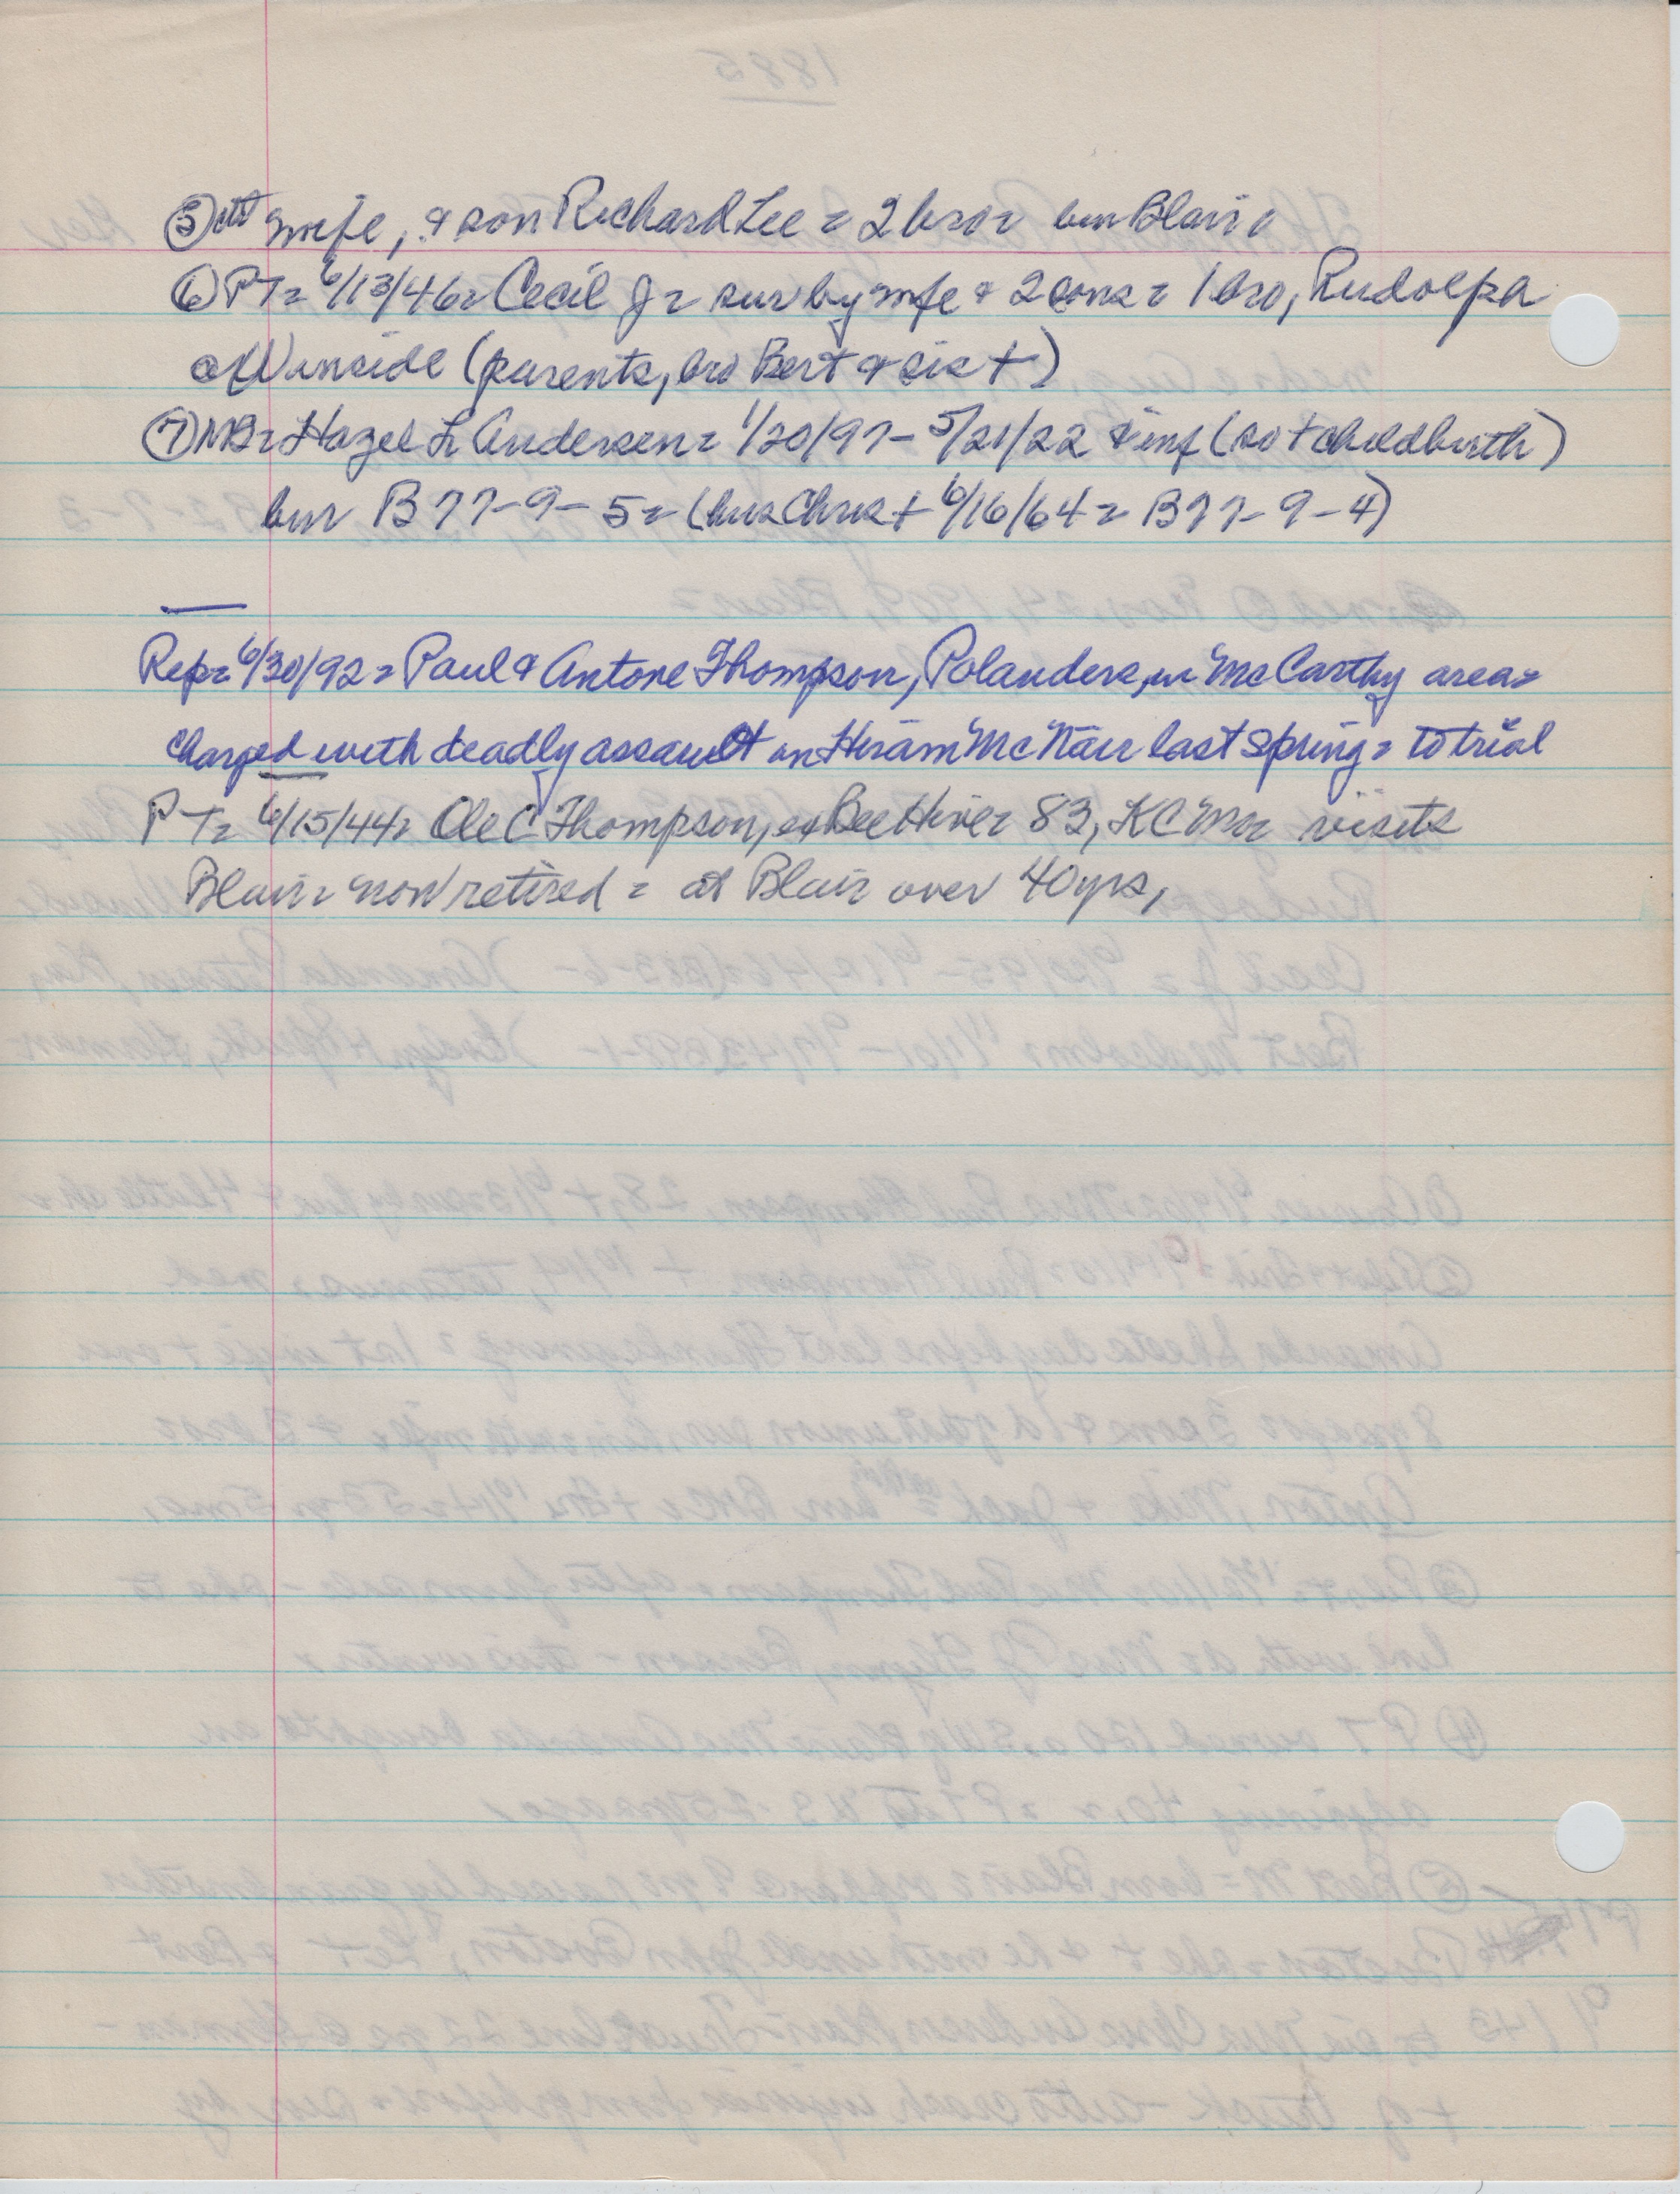 ⑤ctd wife, & son Richard Lee = 2 bro = bur Blair =
⑥ PT = 6/13/46 = Cecil J = sur by wife & 2 sons = 1 bro, Rudolph
of Winside (parents, bro Bert & sis +)
⑦ MB = Hazel L Andersen = 1/20/97 - 5/21/22 & inf (so + childbirth)
bur B 77-9-5 = (hus Chris + 6/16/64 = B 77-9-4)
Rep = 6/30/92 = Paul & Antone Thompson, Polanders, in McCarthy area =
charged with deadly assault on Hiram McNair last spring = to trial
PT = 6/15/44 = Ole C Thompson, ex Bee Hive = 83, KC Mo = visits
Blair = now retired = at Blair over 40 yrs,